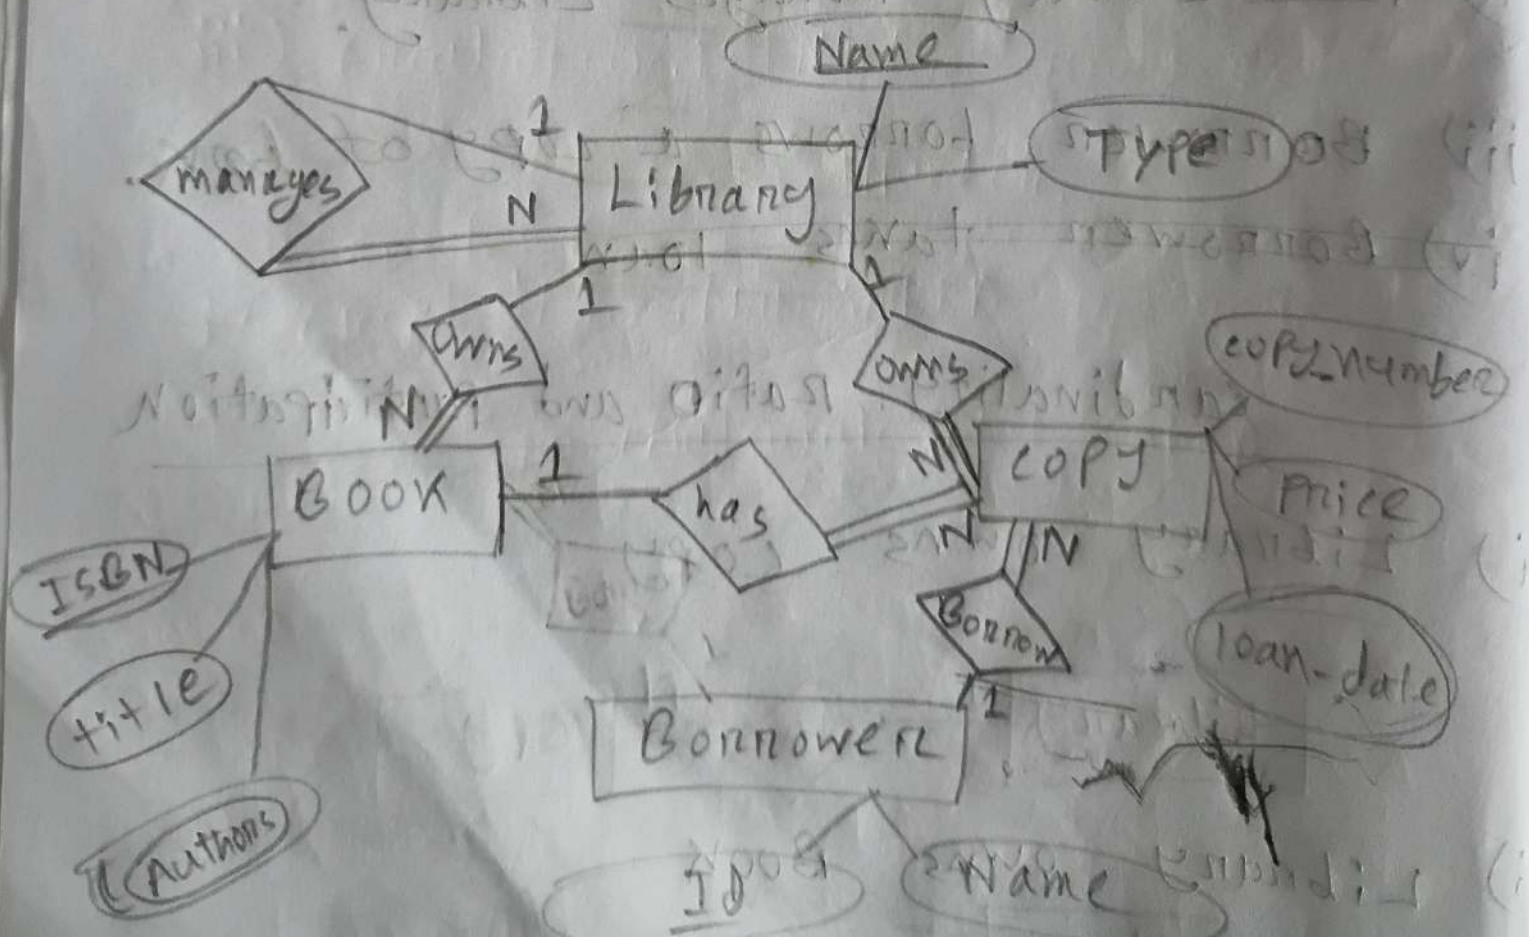 Name
Type
manages
1
N
Library
1
1
owns
owns
copy_number
N
N
Book
1
has
copy
Price
N
N
ISBN
Borrow
loan_date
title
1
Borrower
Authors
ID
Name